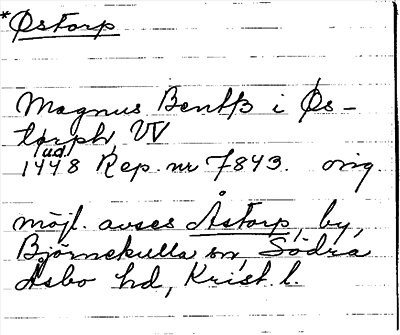 *Østorp
Magnus Bentß i Øs-
torph, VV
ud.
1448 Rep. nr 7843. orig.
möjl. avses Åstorp, by,
Björnekulla sn, Södra
Åsbo hd, Krist. l.